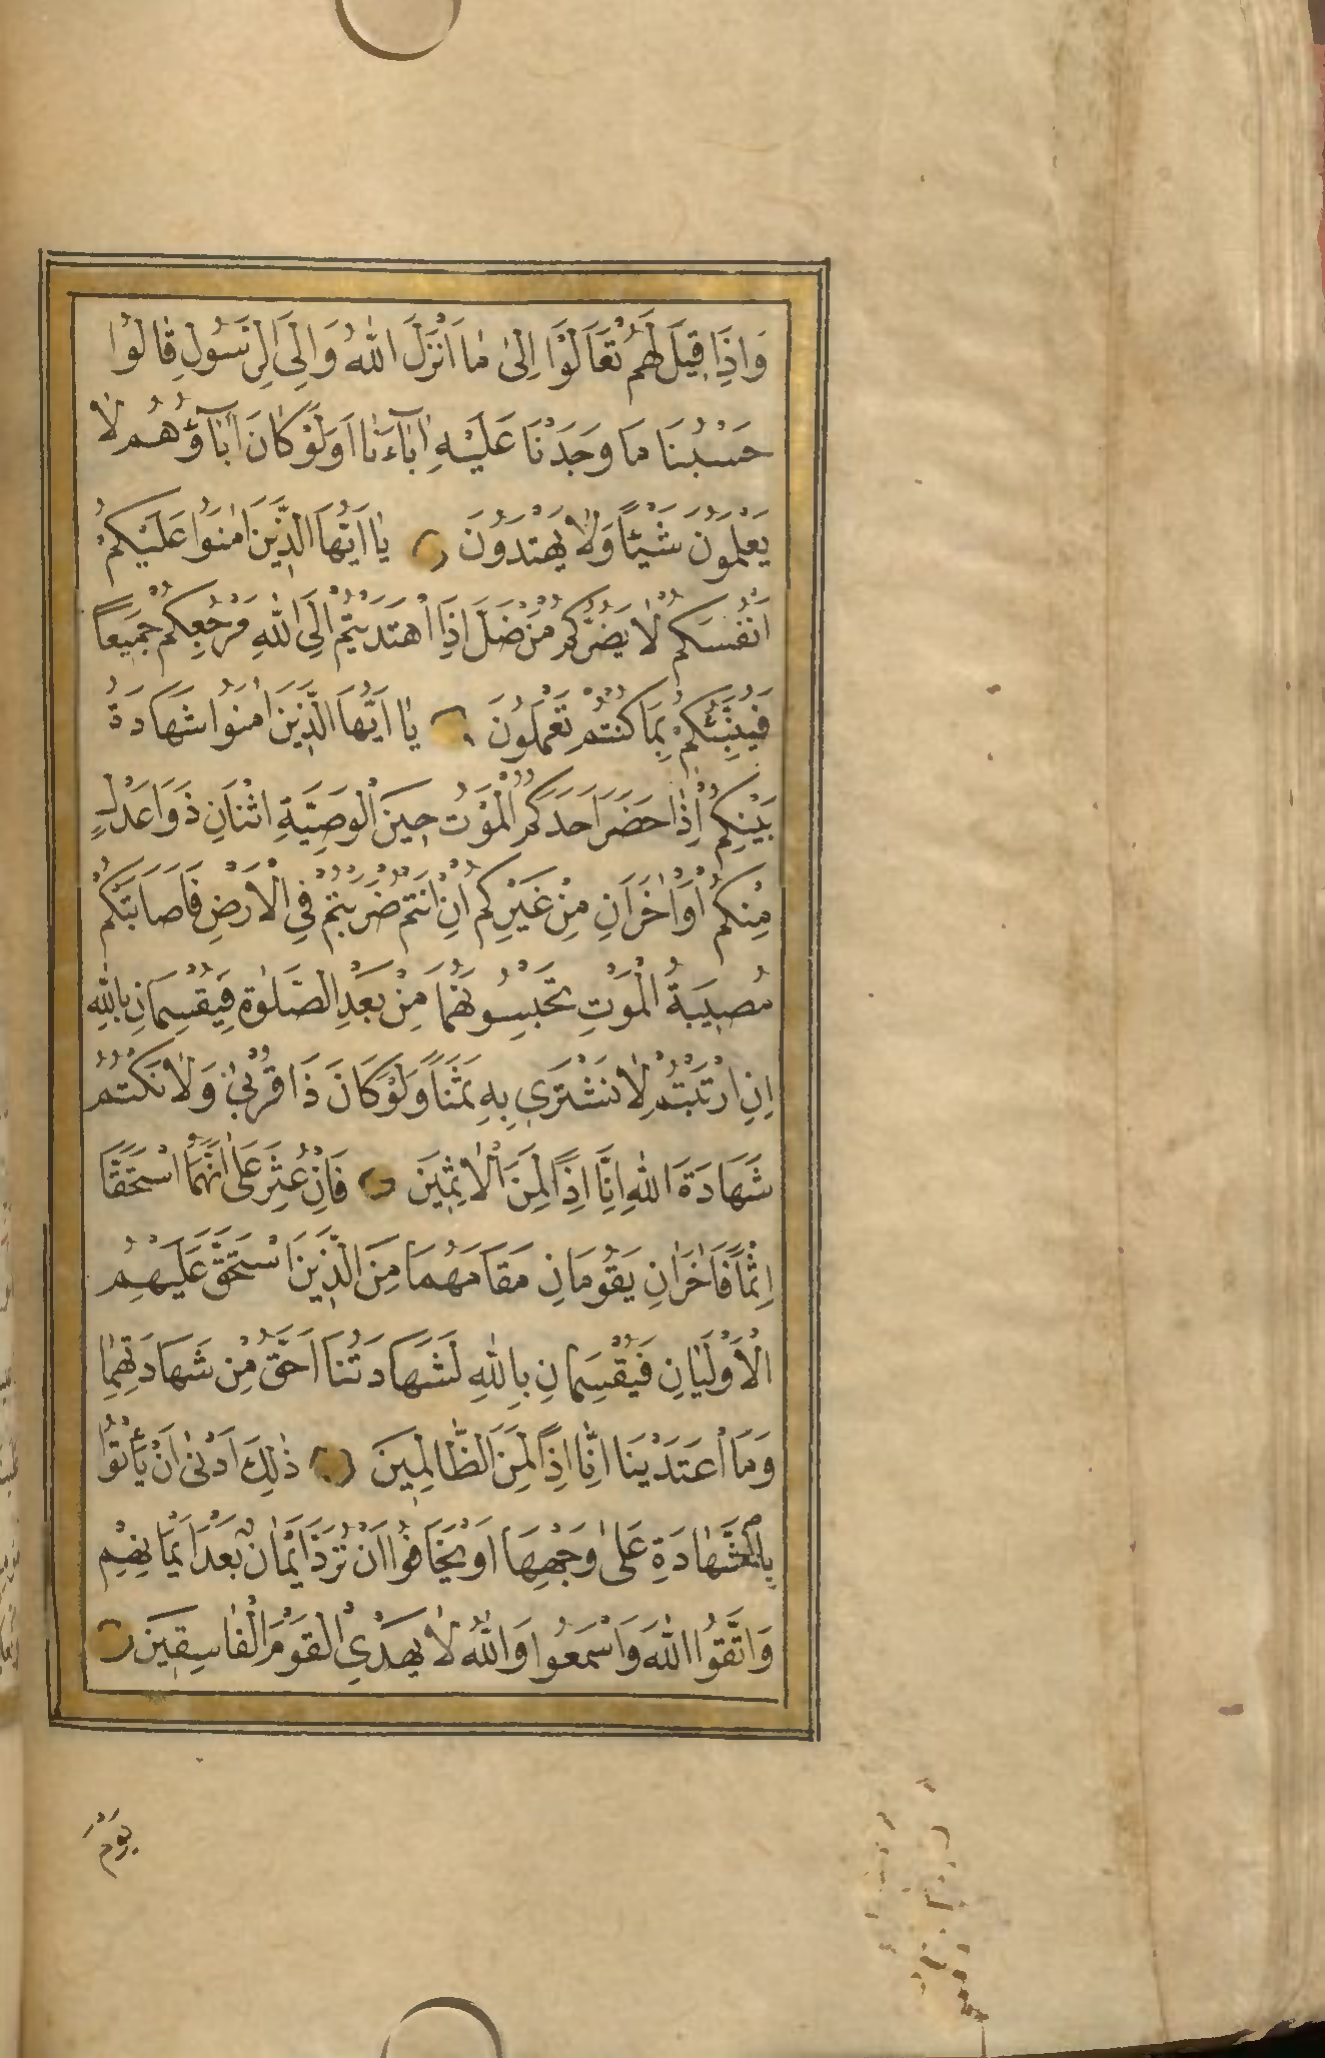 وَاِذَا قِيلَ لَهُمْ تَعَالَوْا اِلىٰ مَا اَنْزَلَ اللّٰهُ وَاِلَى الرَّسُولِ قَالُوا
حَسْبُنَا مَا وَجَدْنَا عَلَيْهِ اٰبَآءَنَا اَوَلَوْ كَانَ اٰبَآؤُهُمْ لَا
يَعْلَمُونَ شَيْئًا وَلَا يَهْتَدُونَ يَا اَيُّهَا الَّذِينَ اٰمَنُوا عَلَيْكُمْ
اَنْفُسَكُمْ لَا يَضُرُّكُمْ مَنْ ضَلَّ اِذَا اهْتَدَيْتُمْ اِلَى اللّٰهِ مَرْجِعُكُمْ جَمِيعًا
فَيُنَبِّئُكُمْ بِمَا كُنْتُمْ تَعْمَلُونَ يَا اَيُّهَا الَّذِينَ اٰمَنُوا شَهَادَةُ
بَيْنِكُمْ اِذَا حَضَرَ اَحَدَكُمُ الْمَوْتُ حِينَ الْوَصِيَّةِ اثْنَانِ ذَوَا عَدْلٍ
مِنْكُمْ اَوْ اٰخَرَانِ مِنْ غَيْرِكُمْ اِنْ اَنْتُمْ ضَرَبْتُمْ فِي الْاَرْضِ فَاَصَابَتْكُمْ
مُصِيبَةُ الْمَوْتِ تَحْبِسُونَهُمَا مِنْ بَعْدِ الصَّلٰوةِ فَيُقْسِمَانِ بِاللّٰهِ
اِنِ ارْتَبْتُمْ لَا نَشْتَرِي بِهِ ثَمَنًا وَلَوْ كَانَ ذَا قُرْبىٰ وَلَا نَكْتُمُ
شَهَادَةَ اللّٰهِ اِنَّا اِذًا لَمِنَ الْاٰثِمِينَ فَاِنْ عُثِرَ عَلىٰ اَنَّهُمَا اسْتَحَقَّا
اِثْمًا فَاٰخَرَانِ يَقُومَانِ مَقَامَهُمَا مِنَ الَّذِينَ اسْتَحَقَّ عَلَيْهِمُ
الْاَوْلَيَانِ فَيُقْسِمَانِ بِاللّٰهِ لَشَهَادَتُنَا اَحَقُّ مِنْ شَهَادَتِهِمَا
وَمَا اعْتَدَيْنَا اِنَّا اِذًا لَمِنَ الظَّالِمِينَ ذٰلِكَ اَدْنىٰ اَنْ يَأْتُوا
بِالشَّهَادَةِ عَلىٰ وَجْهِهَا اَوْ يَخَافُوا اَنْ تُرَدَّ اَيْمَانٌ بَعْدَ اَيْمَانِهِمْ
وَاتَّقُوا اللّٰهَ وَاسْمَعُوا وَاللّٰهُ لَا يَهْدِي الْقَوْمَ الْفَاسِقِينَ
يَوْمَ